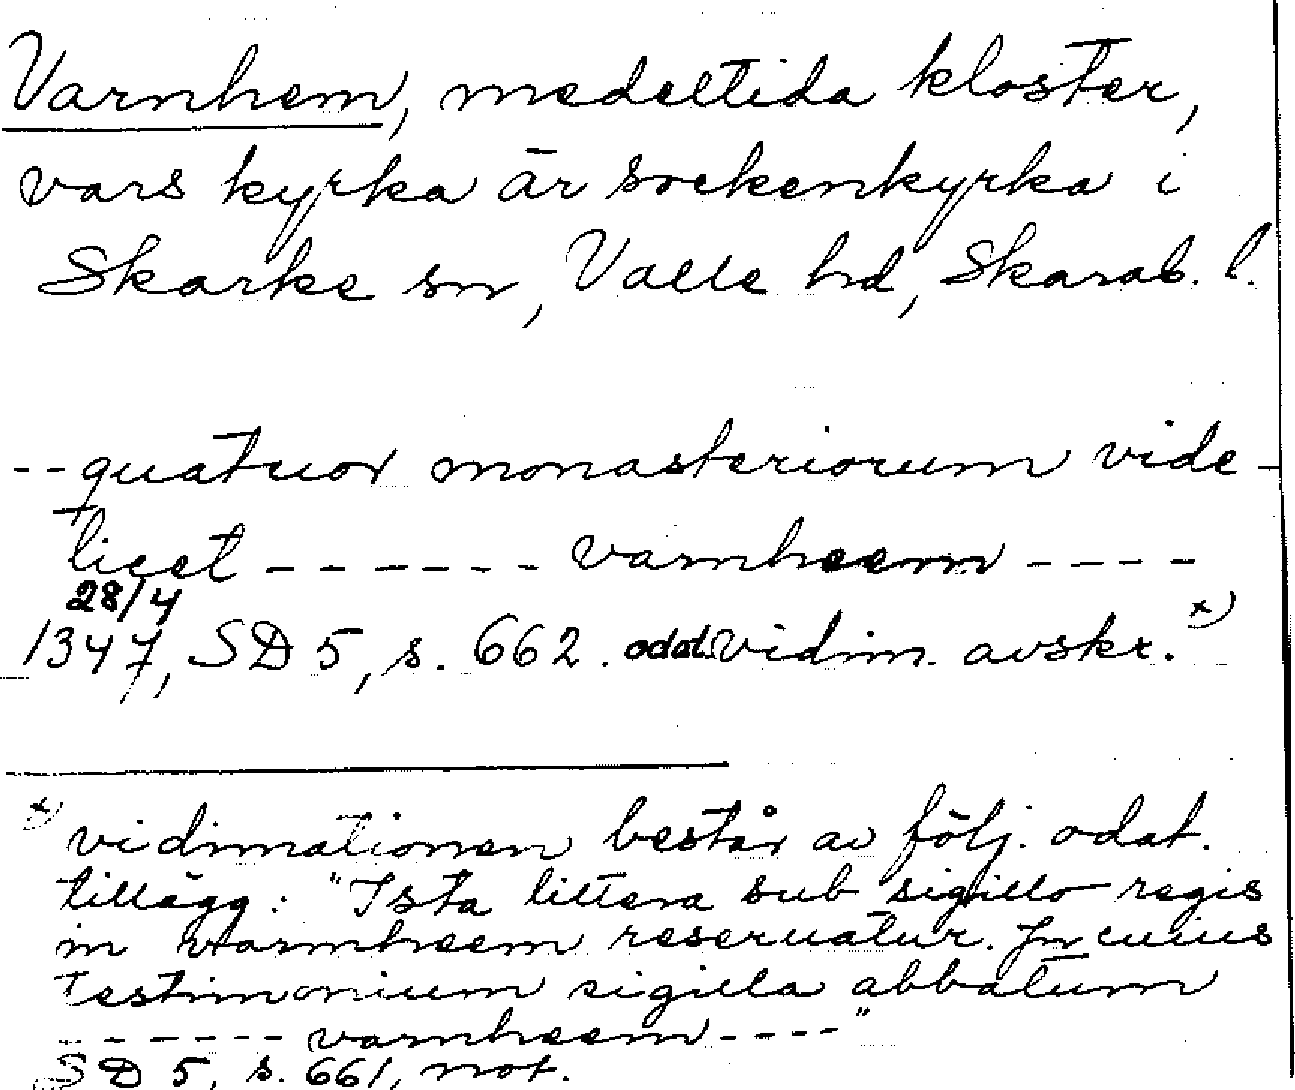 Varnhem, medeltida kloster,
vars kyrka är sockenkyrka i
Skarke sn, Valle hd, Skarab. l.
-- quatuor monasteriorum vide-
licet ------ varnheem ----
28/4
1347, SD 5, s. 662. odat. vidim. avskr. x)
x) vidimationen består av följ. odat.
tillägg: "Ista littera sub sigillo regis
in warnheem reseruatur. Jn cuius
testimonium sigilla abbatum
------ varnheem ----"
SD 5, s. 661, not.